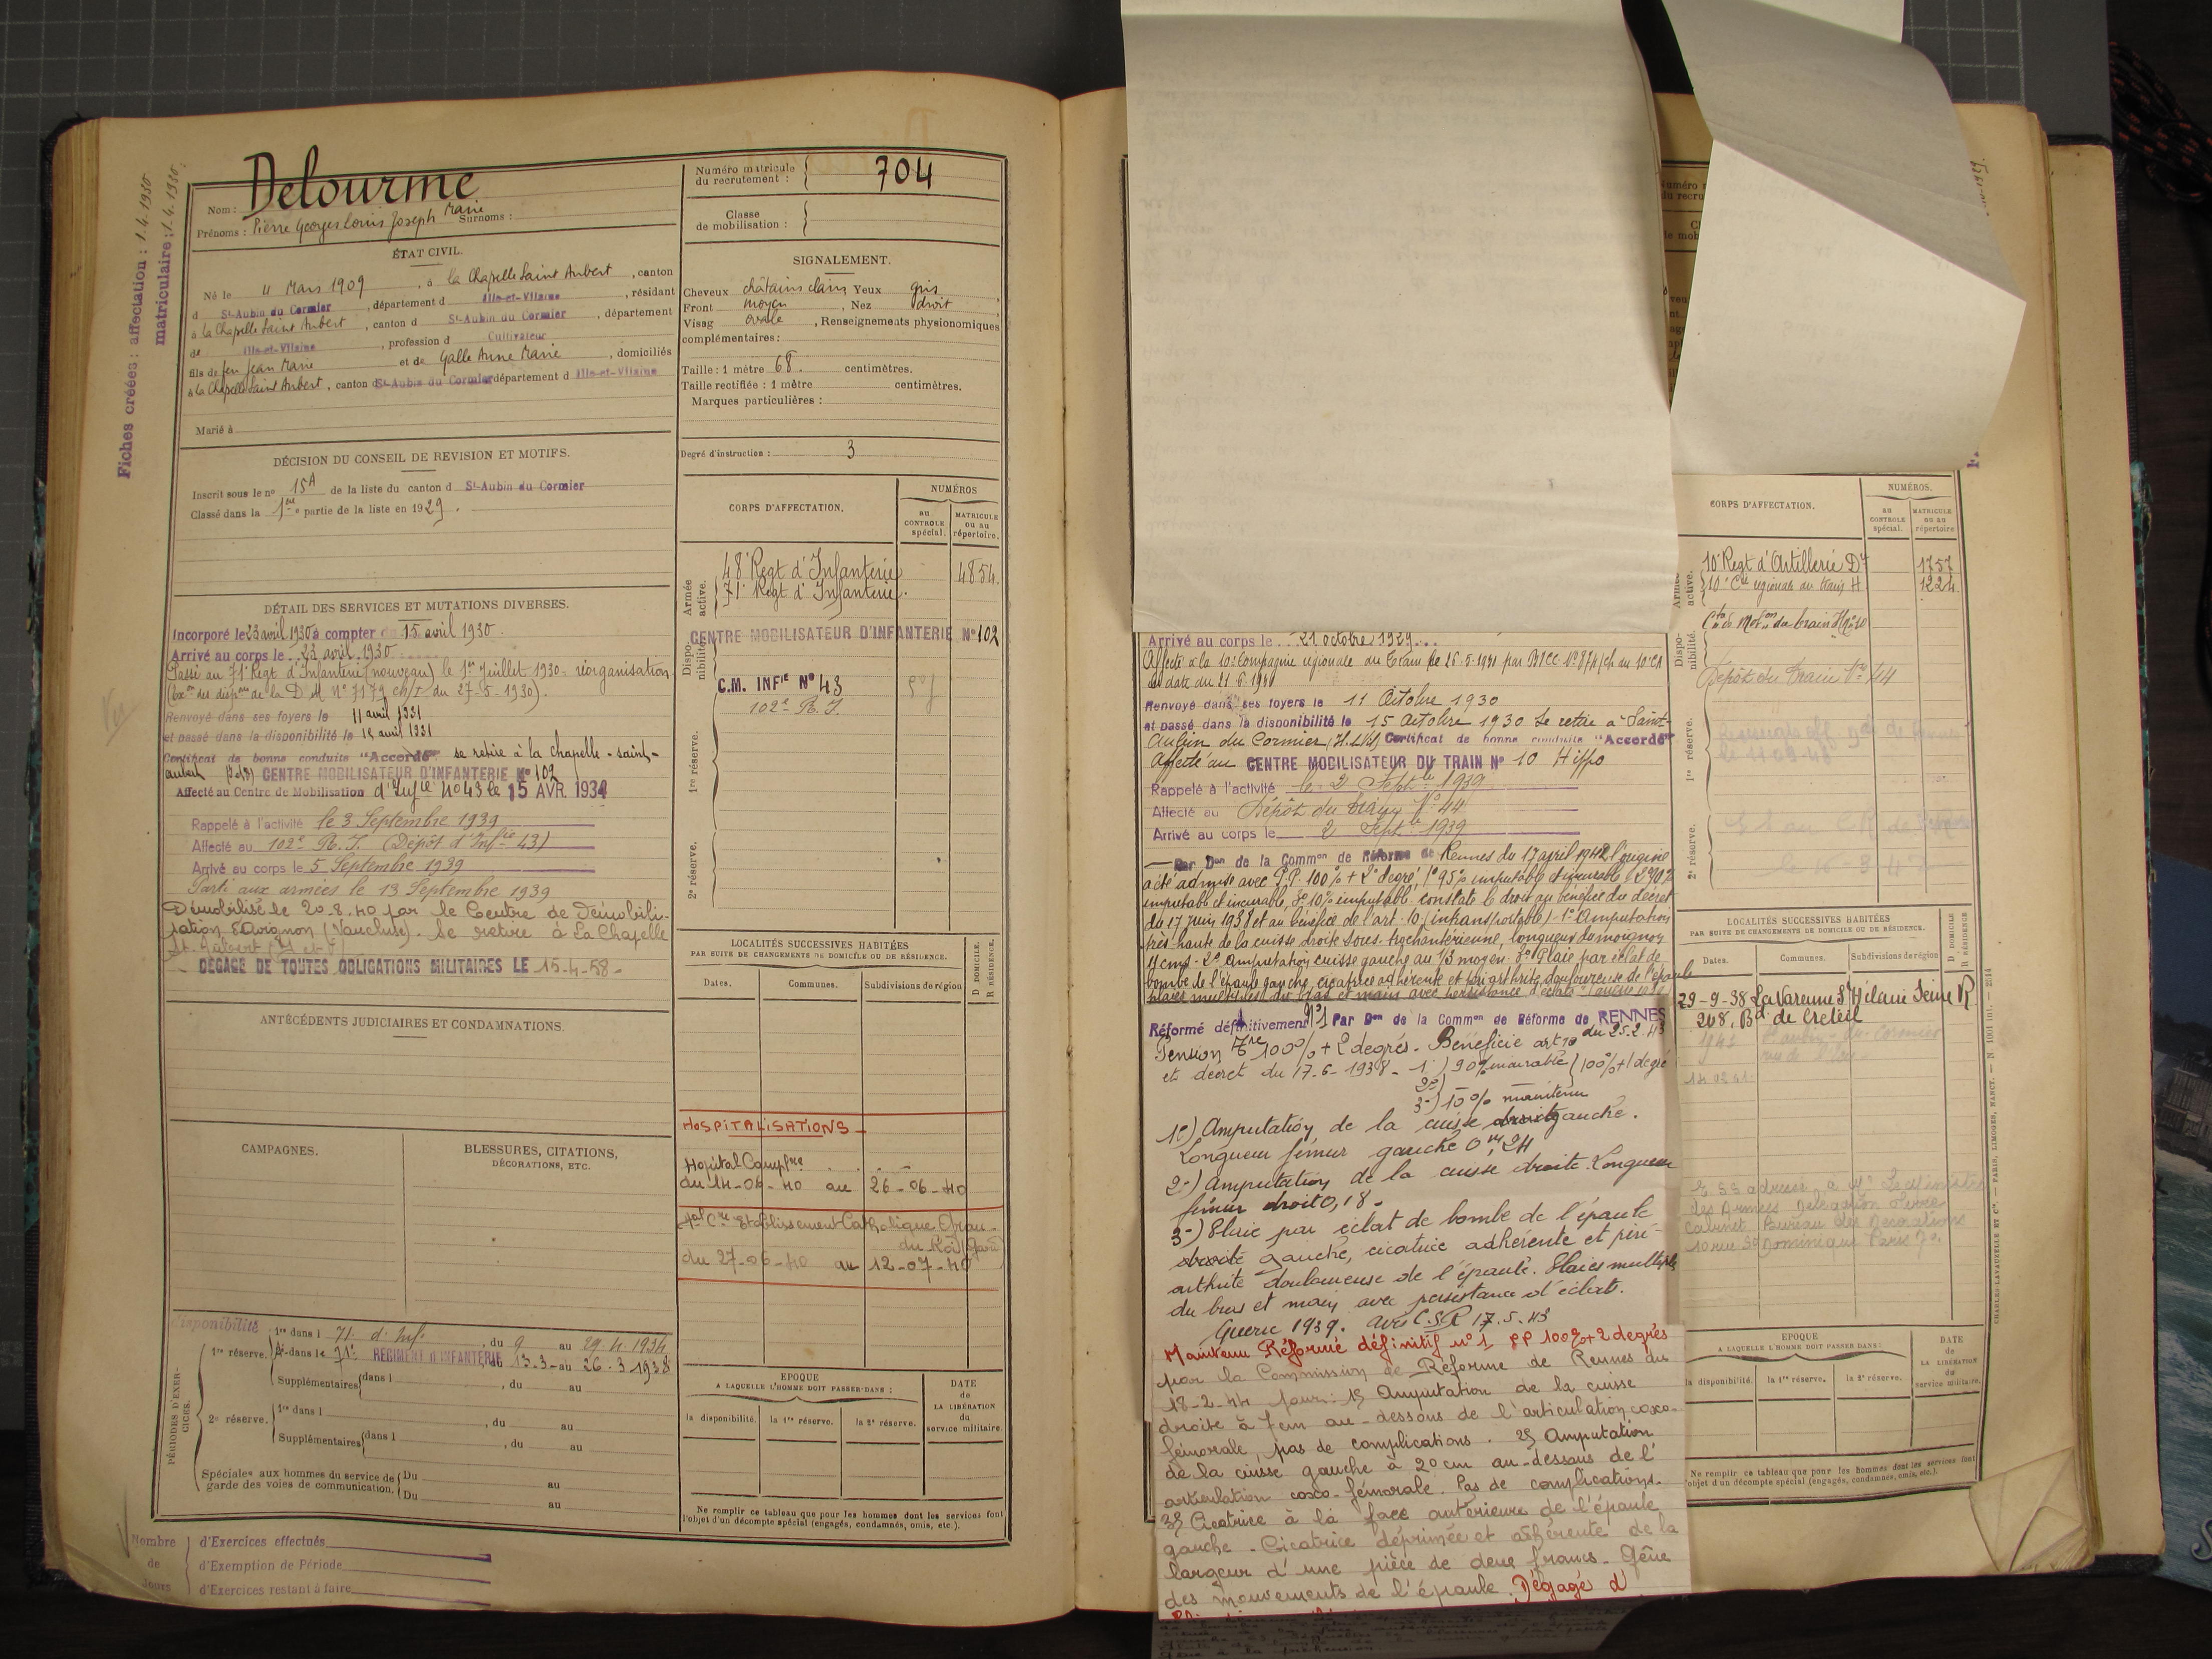 Fiches créées : affectation : 1.4.1930
matriculaire : 1.4.1930
Nom : Delourme
Prénoms : Pierre Georges Louis Joseph Marie Surnoms :
Numéro matricule du recrutement : 704
Classe de mobilisation :
ÉTAT CIVIL.
Né le 4 Mars 1909, à la Chapelle Saint Aubert, canton
d St-Aubin du Cormier, département d Ille-et-Vilaine, résidant
à la Chapelle Saint Aubert, canton d St-Aubin du Cormier, département
de Ille-et-Vilaine, profession d Cultivateur
fils de feu Jean Marie et de Galle Anne Marie, domiciliés
à la Chapelle Saint Aubert, canton d St-Aubin du Cormier département d Ille-et-Vilaine
Marié à
SIGNALEMENT.
Cheveux châtains clairs Yeux gris
Front moyen, Nez droit
Visag ovale, Renseignements physionomiques
complémentaires :
Taille : 1 mètre 68. centimètres.
Taille rectifiée : 1 mètre centimètres.
Marques particulières :
Degré d'instruction : 3
DÉCISION DU CONSEIL DE REVISION ET MOTIFS.
Inscrit sous le no 15A de la liste du canton d St-Aubin du Cormier
Classé dans la 1ère partie de la liste en 1929.
DÉTAIL DES SERVICES ET MUTATIONS DIVERSES.
Incorporé le 23 avril 1930 à compter du 15 avril 1930.
Arrivé au corps le 23 avril 1930
Passé au 71e Regt d'Infanterie (nouveau) le 1er Juillet 1930 - réorganisation
de la D.M. No 7179 du 27-5-1930).
Renvoyé dans ses foyers le 11 avril 1931
et passé dans la disponibilité le 15 avril 1931
Certificat de bonne conduite "Accordé" se retire à la chapelle-saint-
aubert CENTRE MOBILISATEUR D'INFANTERIE No 102
Affecté au Centre de Mobilisation d'Infie No 43 le 15 AVR. 1934
Rappelé à l'activité le 3 Septembre 1939
Affecté au 102e R.I. (Dépôt d'Infie 43)
Arrivé au corps le 5 Septembre 1939
Parti aux armées le 13 Septembre 1939
Démobilisé le 20-8-40 par le Centre de Démobili-
sation d'Avignon (Vaucluse). Se retire à La Chapelle
St. Aubert (I et V)
DÉGAGÉ DE TOUTES OBLIGATIONS MILITAIRES LE 15-4-58-
ANTÉCÉDENTS JUDICIAIRES ET CONDAMNATIONS.
CAMPAGNES.
BLESSURES, CITATIONS,
DÉCORATIONS, ETC.
PÉRIODES D'EXERCICES.
Disponibilité
1re réserve. 1re dans l 71. d'Inf., du 9 au 29.4.1934
2e dans le 71e REGIMENT D'INFANTERIE du 13.3 au 26.3.1938
Supplémentaires dans l, du au
2e réserve. 1re dans l, du au
Supplémentaires dans l, du au
Spéciales aux hommes du service de garde des voies de communication. Du au
Du au
Nombre de Jours
d'Exercices effectués
d'Exemption de Période
d'Exercices restant à faire
CORPS D'AFFECTATION.
NUMÉROS
au CONTROLE spécial.
MATRICULE ou au répertoire.
Armée active.
48e Regt d'Infanterie 4854.
71e Regt d'Infanterie.
Disponibilité.
CENTRE MOBILISATEUR D'INFANTERIE No 102
C.M. INFIE No 43
102e R.I.
1re réserve.
2e réserve.
LOCALITÉS SUCCESSIVES HABITÉES
PAR SUITE DE CHANGEMENTS DE DOMICILE OU DE RÉSIDENCE.
Dates. Communes. Subdivisions de région
D DOMICILE. R RÉSIDENCE.
HOSPITALISATIONS
Hopital Compre
du 14-06-40 au 26-06-40
Etablissement Catholique Grau-
du Roi (Gard)
du 27-06-40 au 12-07-40
EPOQUE
A LAQUELLE L'HOMME DOIT PASSER DANS :
la disponibilité. la 1re réserve. la 2e réserve.
DATE de LA LIBÉRATION du service militaire.
Ne remplir ce tableau que pour les hommes dont les services font
l'objet d'un décompte spécial (engagés, condamnés, omis, etc.).
Arrivé au corps le 21 octobre 1929
Affecté à la 10e Compagnie régionale du Train le 16-5-1930 par
en date du
Renvoyé dans ses foyers le 11 Octobre 1930
et passé dans la disponibilité le 15 Octobre 1930 Se retire à Saint-
Aubin du Cormier (I. et Vil) Certificat de bonne conduite "Accordé"
Affecté au CENTRE MOBILISATEUR DU TRAIN No 10 Hippo
Rappelé à l'activité le 2 Septbre 1939
Affecté au Dépôt du Train No 44
Arrivé au corps le 2 Septbre 1939
Par Don de la Common de Réforme de Rennes du 17 april 1942 l'origine
a été admise avec P.P. 100% + 2e degré, 1o 95% imputable et incurable, 2o
imputable et incurable, 3o 10% imputable. constate le droit au bénéfice du décret
du 17 juin 1938 et au bénéfice de l'art. 10 (intransportable) - 1o Amputation
très haute de la cuisse droite sous-trochantérienne, longueur du moignon
11 cms - 2o Amputation cuisse gauche au 1/3 moyen. 3o Plaie par éclat de
bombe de l'épaule gauche, cicatrice adhérente et périarthrite douloureuse de l'épaule
plaies multiples du bras et main avec persistance d'éclats.
Réformé définitivement No 1 Par Don de la Common de Réforme de RENNES
du 25.2.43
Pension 100% + 2 degrés. Bénéficie art 10
et décret du 17-6-1938 - 1o) 90% incurable (100% + 1 degré
2o)
3o) 10% maintenu
1o) Amputation de la cuisse droite gauche.
Longueur fémur gauche 0m,24
2o) Amputation de la cuisse droite. Longueur
fémur droit 0,18 -
3o) Plaie par éclat de bombe de l'épaule
droite gauche, cicatrice adhérente et péri-
arthrite douloureuse de l'épaule. Plaies multiples
du bras et main avec persistance d'éclats.
Guerre 1939. avis C.S.R 17.5.43
Maintenu Réformé définitif no 1 PP 100% + 2 degrés
par la Commission de Réforme de Rennes du
18-2-44 pour : 1o Amputation de la cuisse
droite à 7cm au-dessous de l'articulation coxo-
fémorale, pas de complications. 2o Amputation
de la cuisse gauche à 20cm au-dessous de l'
articulation coxo-fémorale. Pas de complications.
3o Cicatrice à la face antérieure de l'épaule
gauche. Cicatrice déprimée et adhérente de la
largeur d'une pièce de deux francs. Gêne
des mouvements de l'épaule. Dégagé d'
CORPS D'AFFECTATION.
NUMÉROS.
au CONTROLE spécial.
MATRICULE ou au répertoire
10e Regt d'Artillerie Dre 1757
10e Cie régionale du train H. 1224
Dépôt du Train No 44
1re réserve.
2e réserve.
LOCALITÉS SUCCESSIVES HABITÉES
PAR SUITE DE CHANGEMENTS DE DOMICILE OU DE RÉSIDENCE.
Dates. Communes. Subdivisions de région
29-9-38 La Varenne St Hilaire Seine R.
208, Bd de Créteil
des Armées
Cabinet Bureau des Décorations
10 rue St Dominique Paris 7e.
EPOQUE
A LAQUELLE L'HOMME DOIT PASSER DANS :
la disponibilité. la 1re réserve. la 2e réserve.
DATE de LA LIBÉRATION du service militaire.
Ne remplir ce tableau que pour les hommes dont les services font
l'objet d'un décompte spécial (engagés, condamnés, omis, etc.).
CHARLES-LAVAUZELLE ET Cie. — PARIS, LIMOGES, NANCY.